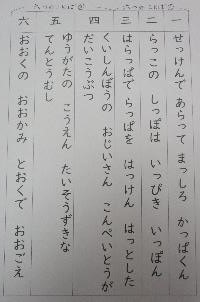 一 せっけんで あらって まっしろ かっぱくん
二 らっこの しっぽは いっぴき いっぽん
三 はらっぱで らっぱを はっけん はっとした
四 くいしんぼうの おじいさん こんぺいとうが
だいこうぶつ
五 ゆうがたの こうえん たいそうずきな
てんとうむし
六 おおくの おおかみ とおくで おおごえ